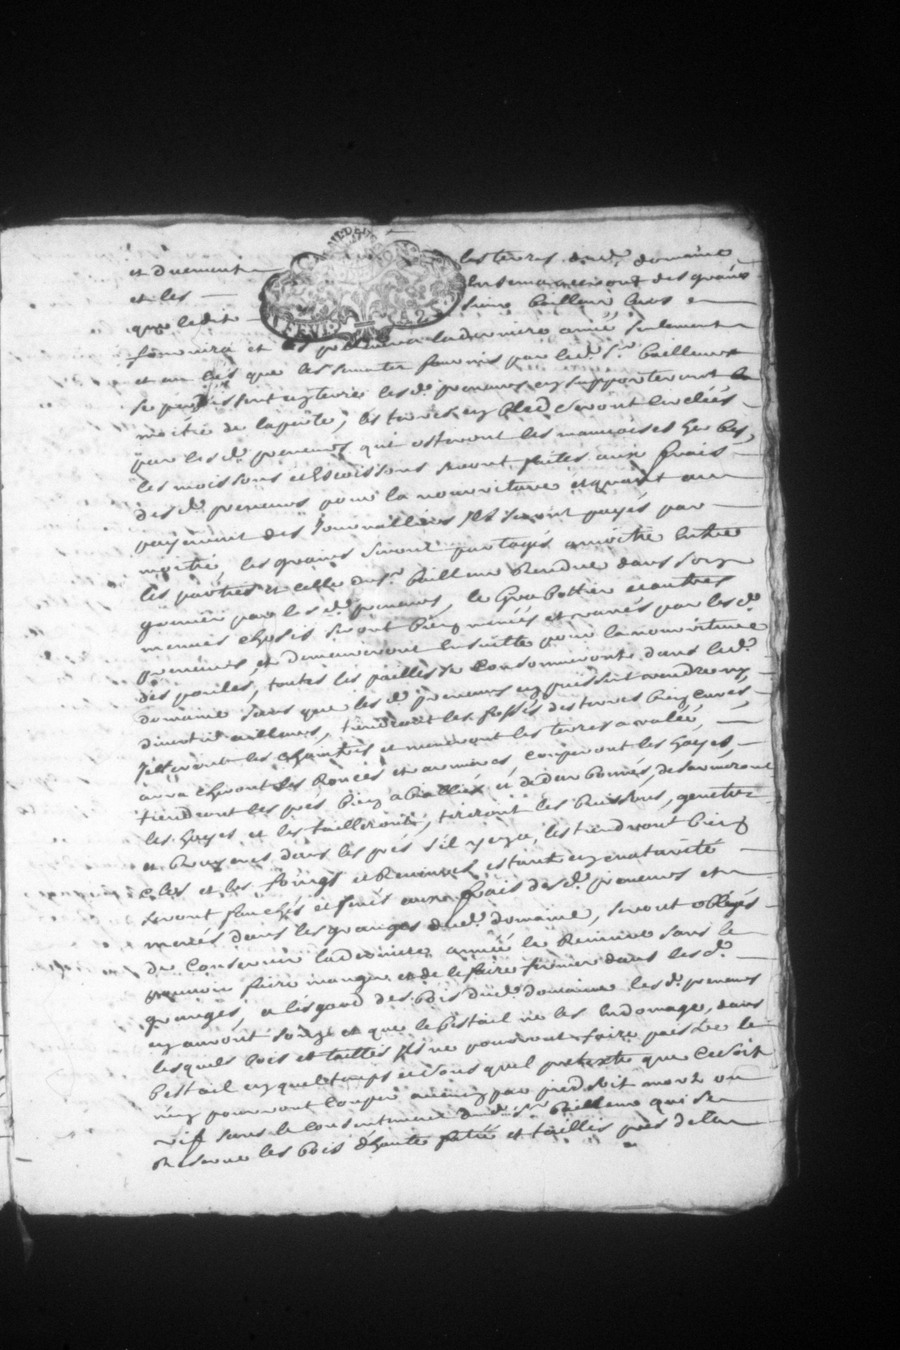 et duement les terres dud. domaine
et les ensemanceront des grains
que ledit sieur bailleur leurs en
fournira et la derniere année seulement
et au cas que les fournis par led. sr. bailleur
se perdissent en terre les d. preneurs en supporteront la
moitié de la perte, les terres en bled seront cerclées
par les d. preneurs qui osteront les mauvaises herbes,
les moissons et seront faites aux frais
des d. preneurs pour la nouriture et quant au
payement des journalliers ils seront payés par
moitié, les grains seront partagés a moitié entre
les parties et celle du sr. bailleur rendue dans son
grenier par les d. preneurs, le et autres
menues choses seront bien menés et vanés par les d.
preneurs et demeureront ensuitte pour la nourriture
des poules, toutes les pailles se consommeront dans led.
domaine sans que les d. preneurs en puissent vendre ny
divertir ailleurs, tiendront les fossés des terres bien curés,
releveront les et meneront les terres a valée,
arracheront les ronces et couperont les hayes,
tiendront les prés bien et
les hayes et les tailleront, tireront les buissons, genetz
et bruyeres dans les prés s'il y en a, les tiendront bien
clos et les foings et revivres estants en maturité
seront fauchés et fenés aux frais des d. preneurs et
menés dans les granges dud. domaine, seront obligés
de conserver la derniere année le revivre sans le
pouvoir faire manger et de le faire fermer dans les d.
granges, a l'esgard des bois dud. domaine les d. preneurs
en auront soing et que le bestail ne les endomage, dans
lesquels bois et tailles ils ne pourront faire paistre le
bestail en quel temps et sous quel pretexte que ce soit
n'en pourront couper aucun par pied soit mort ou
vif sans le consentement dud. sr. bailleur qui se
reserve les bois d'haute futée et tailles pres de la